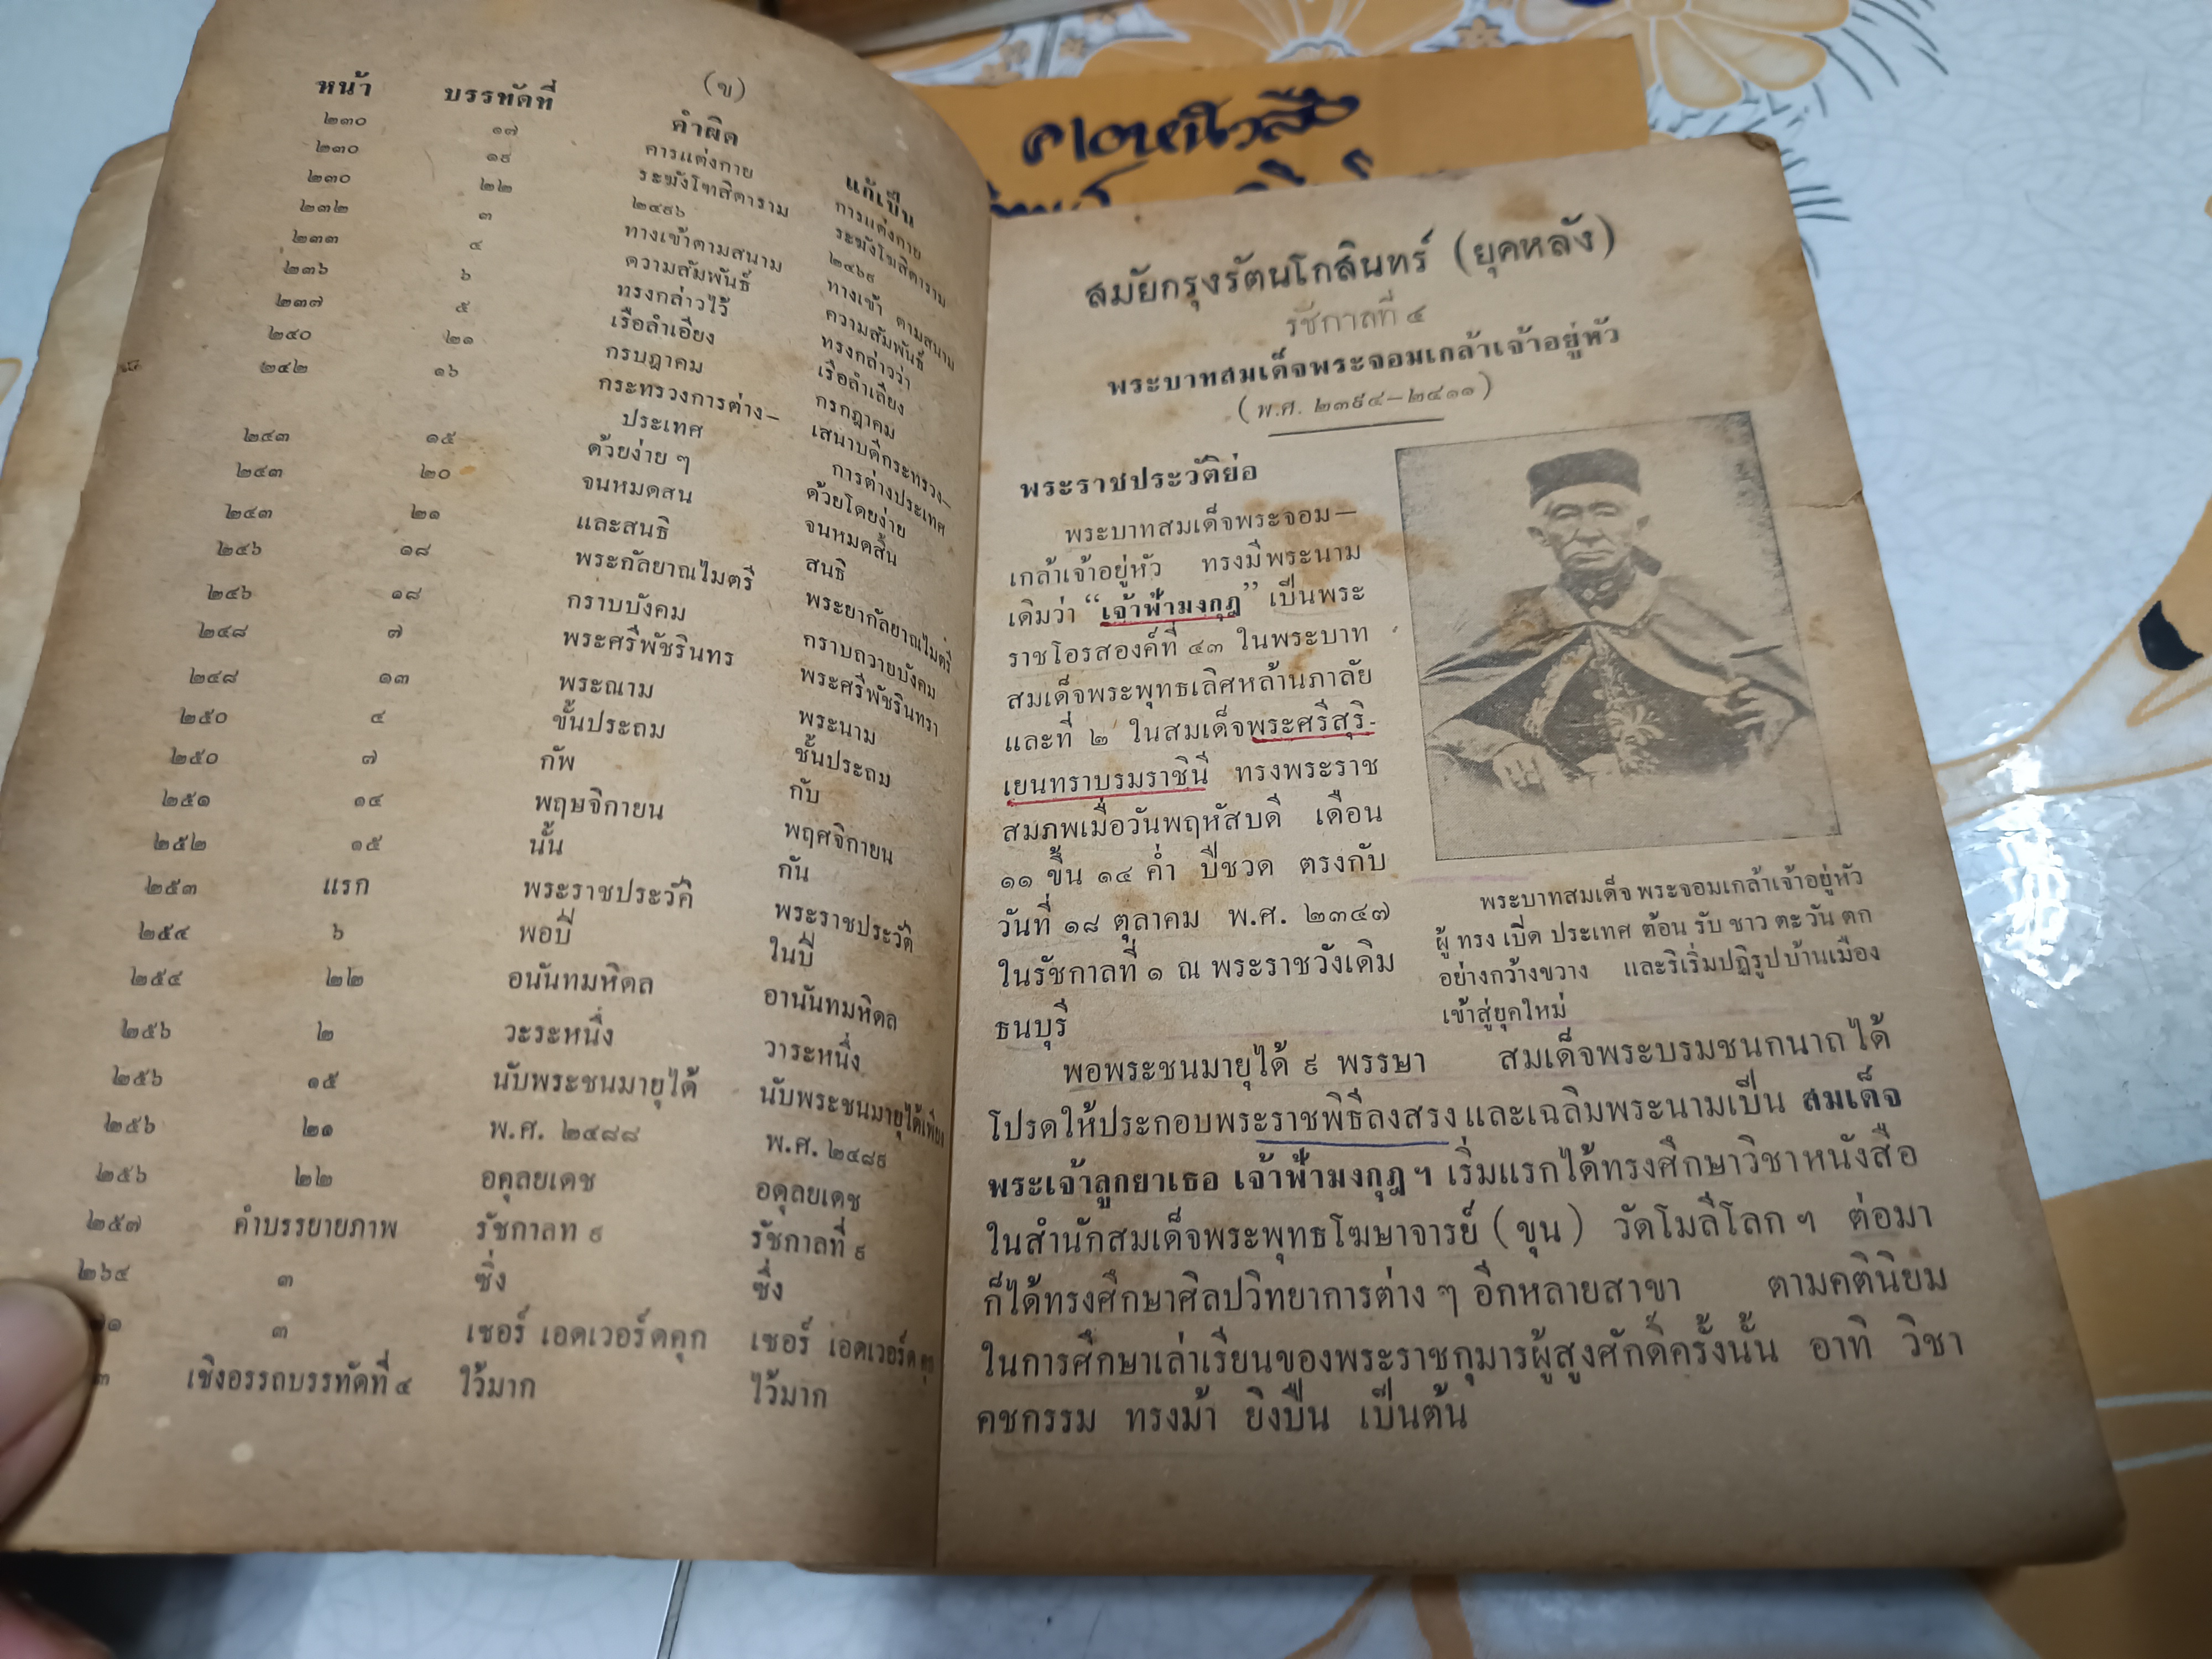 (ข)
หน้า บรรทัดที่ คำผิด แก้เป็น
๒๓๐ ๑๗ คารแต่งกาย การแต่งกาย
๒๓๐ ๑๙ ระฆังโฑสิตาราม ระฆังโฆสิตาราม
๒๓๐ ๒๒ ๒๔๙๖ ๒๔๖๙
๒๓๒ ๓ ทางเข้าตามสนาม ทางเข้า ตามสนาม
๒๓๓ ๔ ความสัมพันธ์ ความสัมพันธ์
๒๓๖ ๖ ทรงกล่าวไว้ ทรงกล่าวว่า
๒๓๗ ๕ เรือลำเอียง เรือลำเลียง
๒๔๐ ๒๑ กรบฎาคม กรกฎาคม
๒๔๒ ๑๖ กระทรวงการต่าง- เสนาบดีกระทรวง-
ประเทศ การต่างประเทศ
๒๔๓ ๑๕ ด้วยง่าย ๆ ด้วยโดยง่าย
๒๔๓ ๒๐ จนหมดสน จนหมดสิ้น
๒๔๓ ๒๑ และสนธิ สนธิ
๒๔๖ ๑๘ พระกัลยาณไมตรี พระยากัลยาณไมตรี
๒๔๖ ๑๘ กราบบังคม กราบถวายบังคม
๒๔๘ ๗ พระศรีพัชรินทร พระศรีพัชรินทรา
๒๔๘ ๑๓ พระณาม พระนาม
๒๕๐ ๔ ขั้นประถม ชั้นประถม
๒๕๐ ๗ กัพ กับ
๒๕๑ ๑๔ พฤษจิกายน พฤศจิกายน
๒๕๒ ๑๕ นั้น กัน
๒๕๓ แรก พระราชประวัคิ พระราชประวัติ
๒๕๔ ๖ พอปี ในปี
๒๕๔ ๒๒ อนันทมหิดล อานันทมหิดล
๒๕๖ ๒ วะระหนึ่ง วาระหนึ่ง
๒๕๖ ๑๕ นับพระชนมายุได้ นับพระชนมายุได้เพียง
๒๕๖ ๒๑ พ.ศ. ๒๔๘๘ พ.ศ. ๒๔๘๙
๒๕๖ ๒๒ อคุลยเดช อดุลยเดช
๒๕๗ คำบรรยายภาพ รัชกาลท ๙ รัชกาลที่ ๙
๒๖๔ ๓ ซึ่ง ซึ่ง
๑ ๓ เซอร์ เอดเวอร์ดคุก เซอร์ เอดเวอร์ด คุก
๓ เชิงอรรถบรรทัดที่ ๔ ใว้มาก ไว้มาก
สมัยกรุงรัตนโกสินทร์ (ยุคหลัง)
รัชกาลที่ ๔
พระบาทสมเด็จพระจอมเกล้าเจ้าอยู่หัว
(พ.ศ. ๒๓๙๔-๒๔๑๑)
พระราชประวัติย่อ
พระบาทสมเด็จพระจอม-
เกล้าเจ้าอยู่หัว ทรงมีพระนาม
เดิมว่า “เจ้าฟ้ามงกุฎ” เป็นพระ
ราชโอรสองค์ที่ ๔๓ ในพระบาท
สมเด็จพระพุทธเลิศหล้านภาลัย
และที่ ๒ ในสมเด็จพระศรีสุริ-
เยนทราบรมราชินี ทรงพระราช
สมภพเมื่อวันพฤหัสบดี เดือน
๑๑ ขึ้น ๑๔ ค่ำ ปีชวด ตรงกับ
วันที่ ๑๘ ตุลาคม พ.ศ. ๒๓๔๗
ในรัชกาลที่ ๑ ณ พระราชวังเดิม
ธนบุรี
พระบาทสมเด็จ พระจอมเกล้าเจ้าอยู่หัว
ผู้ ทรง เปิด ประเทศ ต้อน รับ ชาว ตะ วัน ตก
อย่างกว้างขวาง และริเริ่มปฏิรูปบ้านเมือง
เข้าสู่ยุคใหม่
พอพระชนมายุได้ ๙ พรรษา สมเด็จพระบรมชนกนาถได้
โปรดให้ประกอบพระราชพิธีลงสรง และเฉลิมพระนามเป็น สมเด็จ
พระเจ้าลูกยาเธอ เจ้าฟ้ามงกุฎ ฯ เริ่มแรกได้ทรงศึกษาวิชาหนังสือ
ในสำนักสมเด็จพระพุทธโฆษาจารย์ (ขุน) วัดโมลีโลก ฯ ต่อมา
ก็ได้ทรงศึกษาศิลปวิทยาการต่าง ๆ อีกหลายสาขา ตามคตินิยม
ในการศึกษาเล่าเรียนของพระราชกุมารผู้สูงศักดิ์ครั้งนั้น อาทิ วิชา
คชกรรม ทรงม้า ยิงปืน เป็นต้น